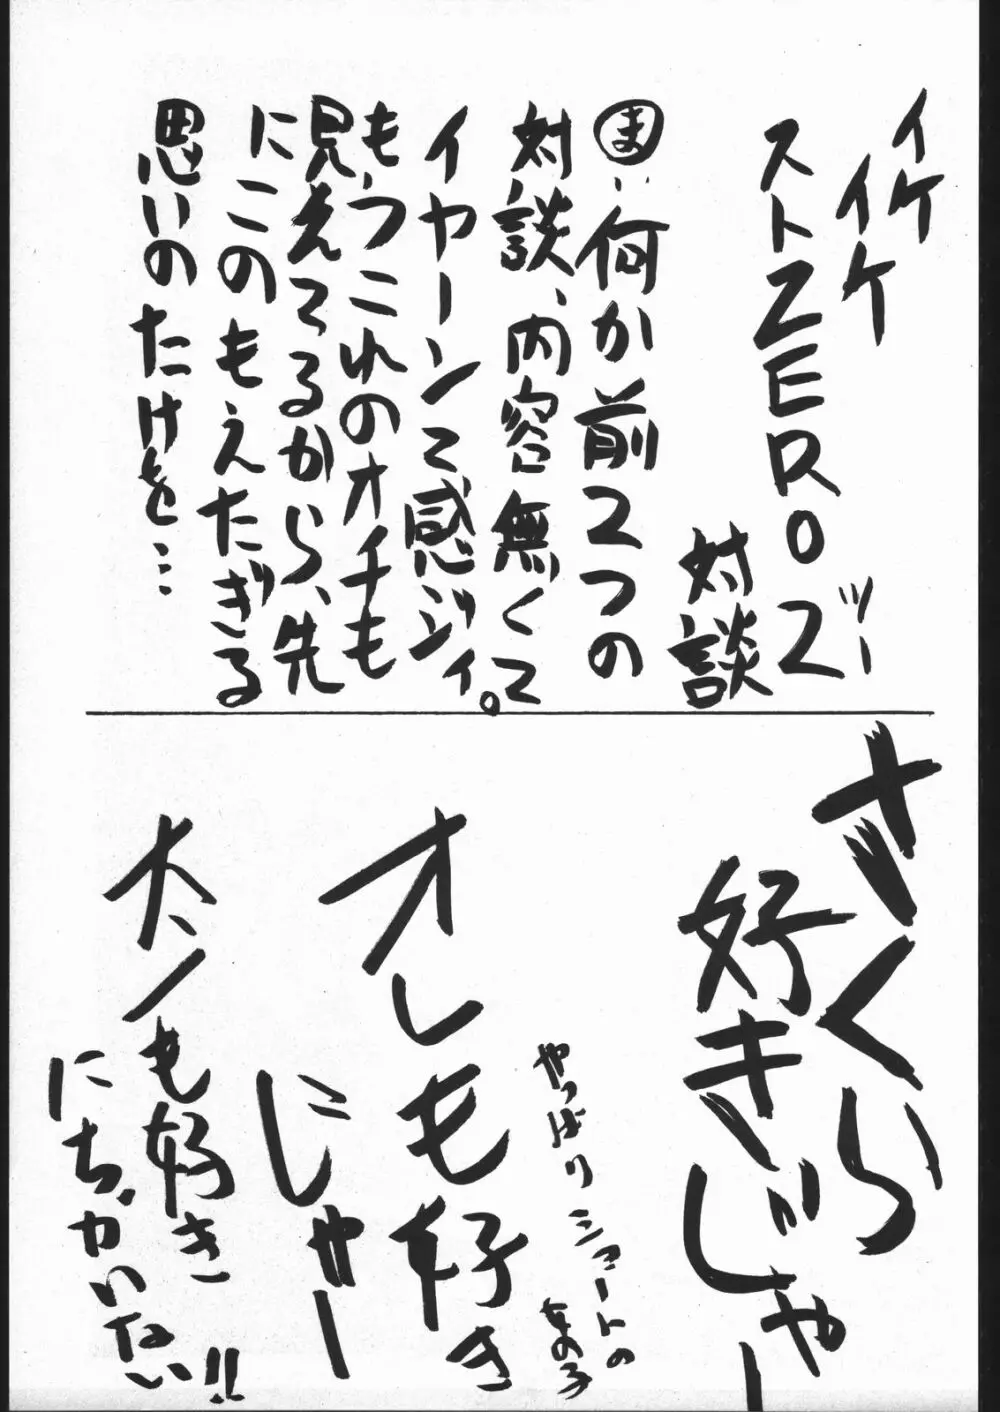 イケ
イケ
ストZERO2
ツー
対談
ま:何か前2つの
対談、内容無くて
イヤーンて感ジィ。
もうこれのオチも
見えてるから、先
にこのもえたぎる
思いのたけを…
さくら
好きじゃー
やっぱりショートの
女の子
オレも好き
にじゃー
大ノも好き
にちがいない!!